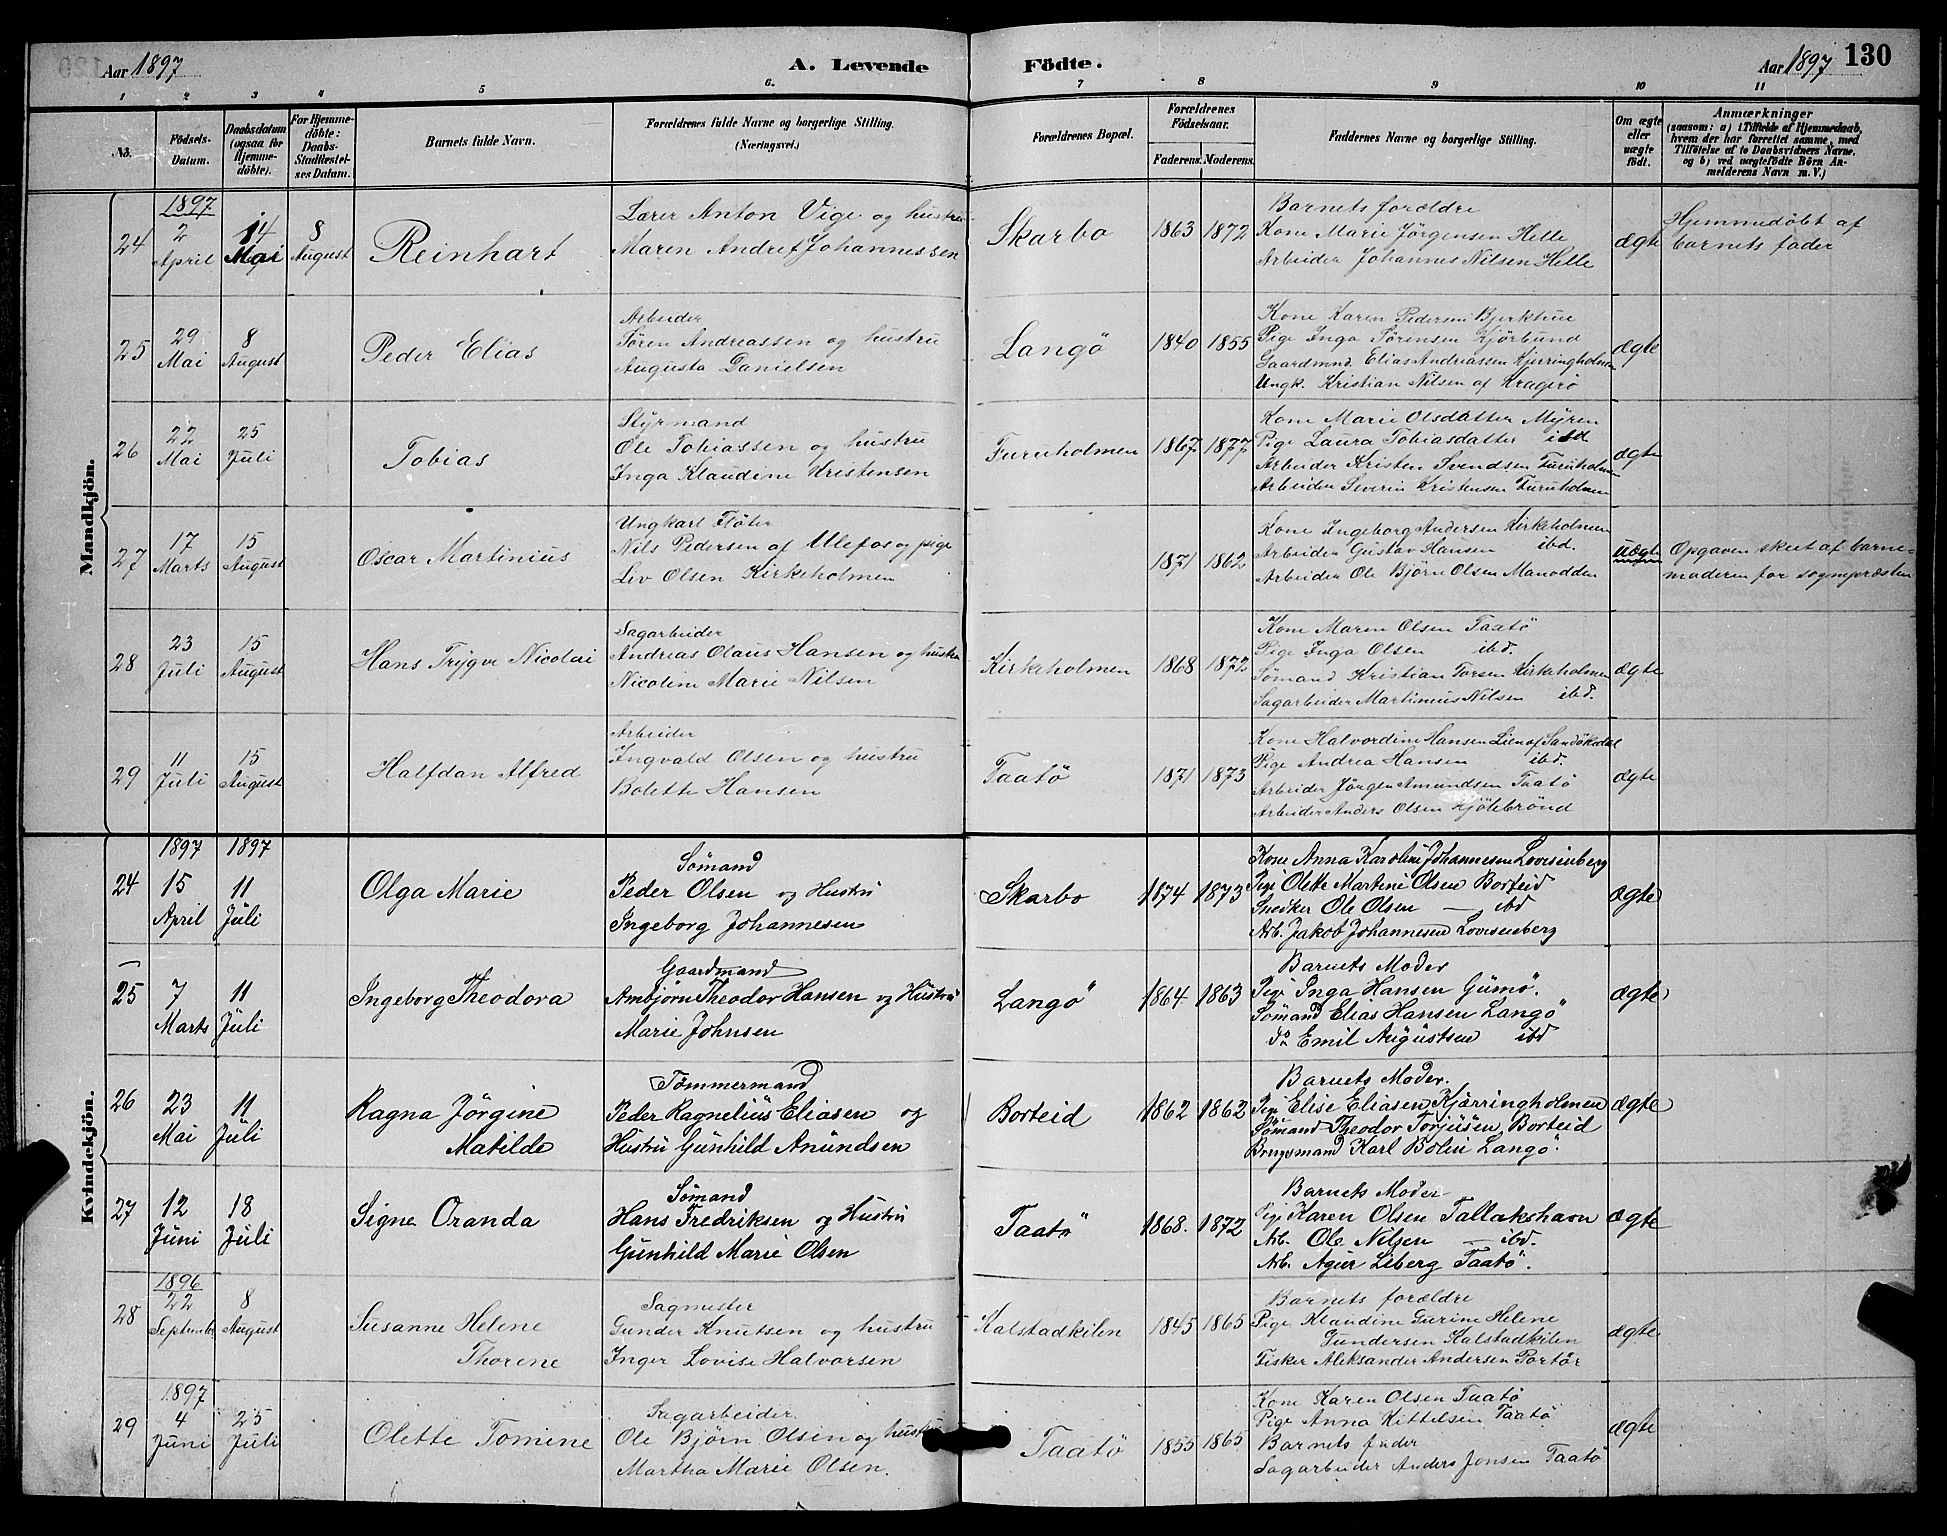 Aar 1897
A. Levende Födte.
Aar 1897 130
1 2 3 4 5 6. 7 8 9 10 11
No.
Födsels-Datum.
Daabsdatum (ogsaa for Hjemme-döbte).
For Hjemme-döbte: Daabs-Stadfæstel-ses Datum.
Barnets fulde Navn.
Forældrenes fulde Navne og borgerlige Stilling.
(Næringsvei.)
Forældrenes Bopæl.
Forældrenes Födselsaar.
Faderens. Moderens.
Faddernes Navne og borgerlige Stilling.
Om ægte eller uægte födt.
Anmærkninger
(saasom: a) i Tilfælde af Hjemmedaab,
hvem der har forrettet samme, med
Tilföielse af to Daabsvidners Navne.
og b) ved uægtefödte Börn An-
melderens Navn m. V.)
Mandkjön.
24
1897
2 April
14 Mai
8 August
Reinhart
Lærer Anton Vige og hustru
Maren Andref Johannessen
Skarbo
1863 1872
Barnets forældre
Kone Marie Jörgensen Helle
Arbeider Johannes Nilsen Helle
ægte
Hjemmedöbt af
barnets fader
25
29 Mai
8 August
Peder Elias
Arbeider
Sören Andreassen og hustru
Augusta Danielsen
Langö
1840 1855
Kone Karen Pedersen Bjerktue
Pige Inga Sörensen Kjörbund
Gaardmnd. Elias Andreassen Kjerringholmen
Ungk. Kristian Nilsen af Kragerö
ægte
26
22 Mai
25 Juli
Tobias
Styrmand
Ole Tobiassen og hustru
Inga Klaudine Kristensen
Furuholmen
1867 1877
Kone Marie Olsdatter Myren
Pige Laura Tobiasdatter ibd
Arbeider Kristen Svendsen Furuholmen
Arbeider Severin Kristensen Furuholmen
ægte
27
17 Marts
15 August
Oscar Martinius
Ungkarl Flöter
Nils Pedersen af Ulefos og pige
Liv Olsen Kirkeholmen
1871 1862
Kone Ingeborg Andersen Kirkeholmen
Arbeider Gustav Hansen ibd.
Arbeider Ole Björn Olsen Manodden
uægte
Opgaven skeet af barne-
moderen for sognepræsten
28
23 Juli
15 August
Hans Trygve Nicolai
Sagarbeider
Andreas Olaus Hansen og hustru
Nicoline Marie Nilsen
Kirkeholmen
1868 1872
Kone Maren Olsen Taatö
Pige Inga Olsen ibd.
Sömand Kristian Torsen Kirkeholmen
Sagarbeider Martinius Nilsen ibd.
ægte
29
11 Juli
15 August
Halfdan Alfred
Arbeider
Ingvald Olsen og hustru
Bolette Hansen
Taatö
1871 1873
Kone Halvordine Hansen Lien af Sandökedal
Pige Andrea Hansen ibd.
Arbeider Jörgen Amundsen Taatö
Arbeider Anders Olsen Kjölebrönd
ægte
Kvindekjön.
24
1897 1897
15 April
11 Juli
Olga Marie
Sömand
Peder Olsen og Hustru
Ingeborg Johannesen
Skarbo
1874 1873
Kone Anna Karoline Johannesen Lovisenberg
Pige Olette Martine Olsen Borteid
Snedker Ole Olsen — ibd
Arb. Jakob Johannesen Lovisenberg
ægte
25
7 Marts
11 Juli
Ingeborg Theodora
Gaardmand
Ambjörn Theodor Hansen og Hustru
Marie Johnsen
Langö
1864 1863
Barnets Moder
Pige Inga Hansen Gumö.
Sömand Elias Hansen Langö
do Emil Augustsen ibd
ægte
26
23 Mai
11 Juli
Ragna Jörgine
Matilde
Tömmermand
Peder Ragnelius Eliasen og
Hustru Gunhild Anundsen
Borteid
1862 1862
Barnets Moder.
Pige Elise Eliasen Kjærringholmen
Sömand Theodor Torjusen Borteid
Brugsmand Karl Bolin Langö.
ægte
27
12 Juni
18 Juli
Signe Oranda
Sömand
Hans Fredriksen og Hustru
Gunhild Marie Olsen
Taatö
1868. 1872
Barnets Moder
Pige Karen Olsen Tallakshavn
Arb. Ole Nilsen — ibd.
Arb. Agur Liberg Taatö.
ægte
28
1896
22 September
8 August
Susanne Helene
Thorene
Sagmester
Gunder Knutsen og hustru
Inger Lovise Halvorsen
Kalstadkilen
1845 1865
Barnets forældre
Pige Klaudine Gurine Helene
Gundersen Kalstadkilen
Fisker Aleksander Andersen Portör
ægte
29
1897
4 Juni
25 Juli
Olette Tomine
Sagarbeider
Ole Björn Olsen og hustru
Martha Marie Olsen.
Taatö
1855 1865
Kone Karen Olsen Taatö
Pige Anna Kittelsen Taatö
Barnets fader
Sagarbeider Anders Jonsen Taatö
ægte